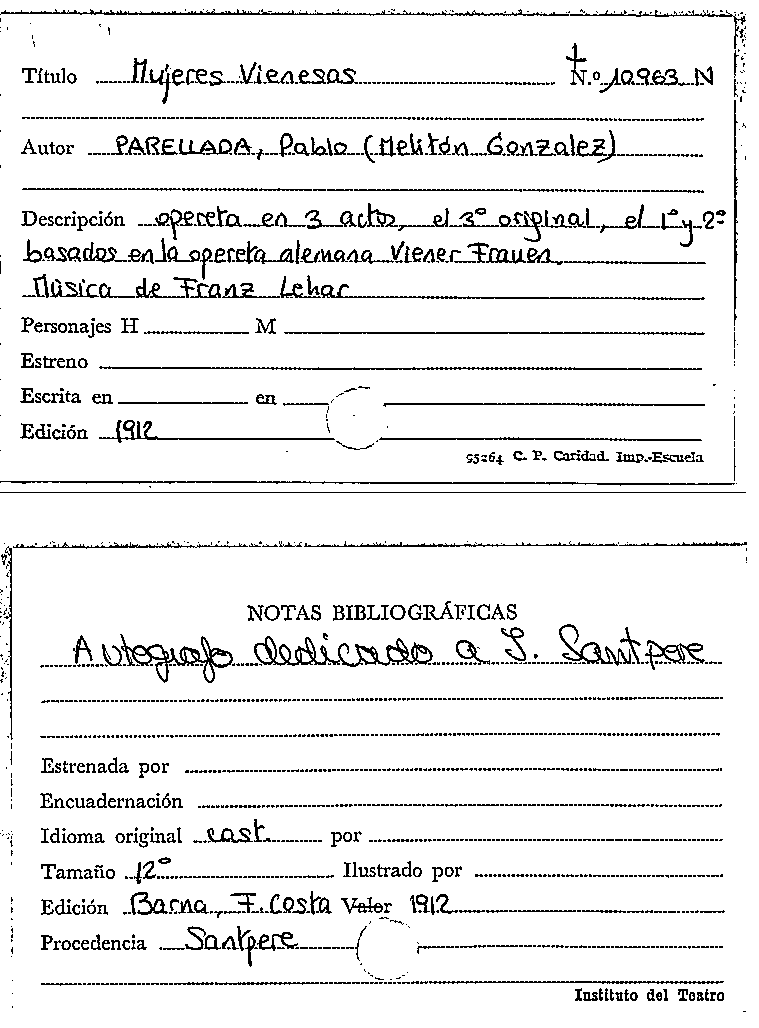 Título Mujeres Vienesas N.º 10963 N
Autor PARELLADA, Pablo (Melitón Gonzalez)
Descripción opereta en 3 actos, el 3º original, el 1º y 2º
basados en la opereta alemana Viener Frauen.
Música de Franz Lehar
Personajes H M
Estreno
Escrita en en
Edición 1912
95264 C. P. Caridad. Imp.-Escuela
NOTAS BIBLIOGRÁFICAS
Autografo dedicado a J. Santpere
Estrenada por
Encuadernación
Idioma original cast. por
Tamaño 12º Ilustrado por
Edición Barna, F. Costa Valor 1912
Procedencia Santpere
Instituto del Teatro